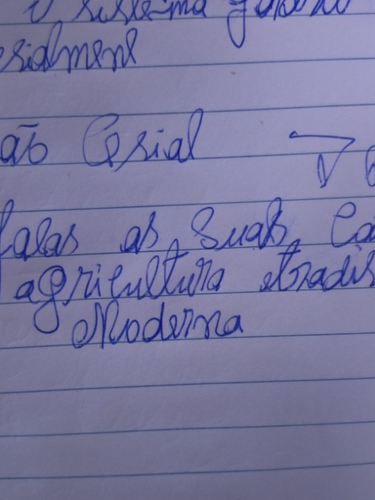 o sistema
esialmene
ão Cesial
falas as suas Ca
agricultura etradis
Moderna